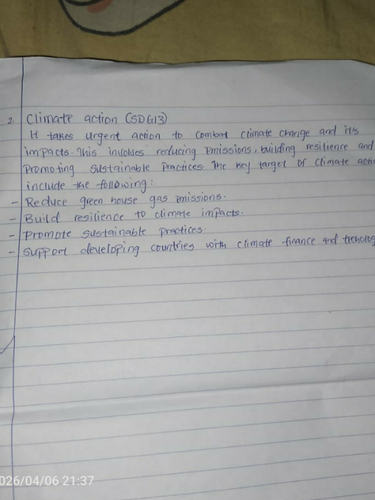 2. Climate action (SDG13)
It takes urgent action to combat climate change and its
impacts. This involves reducing emissions, building resilience and
Promoting sustainable Practices. The key target of climate actio
include the following:
- Reduce green house gas emissions.
- Build resilience to climate impacts.
- Promote sustainable practices.
- Support developing countries with climate finance and
026/04/06 21:37